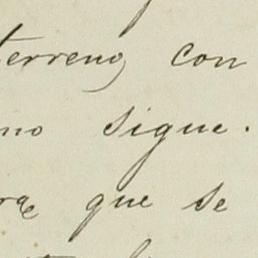 terreno, con
mo sigue.
que se